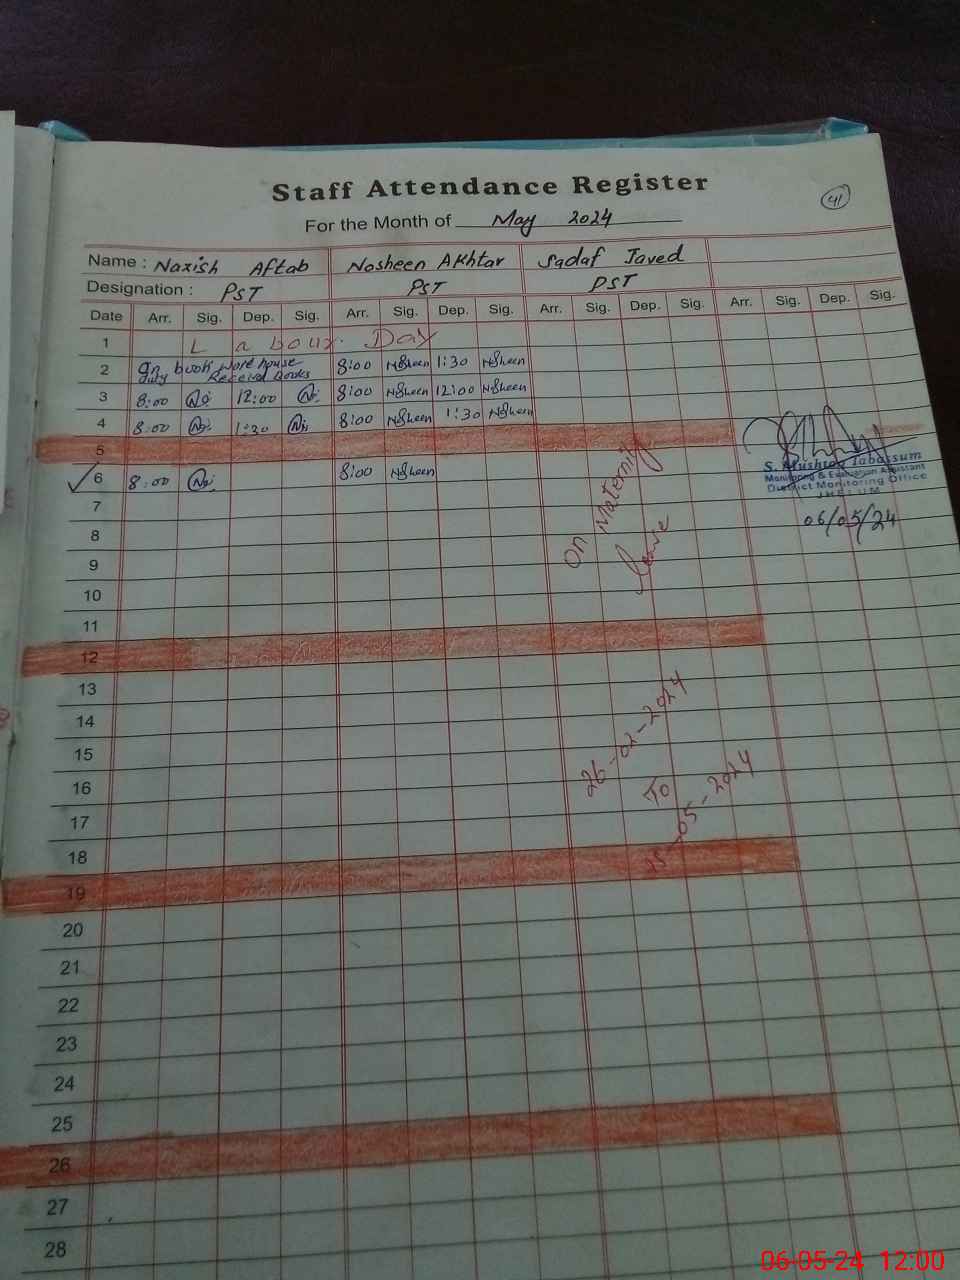 Staff Attendance Register
41
For the Month of May 2024
Name : Naxish Aftab Nosheen Akhtar Sadaf Javed
Designation : PST PST PST
Date Arr. Sig. Dep. Sig. Arr. Sig. Dep. Sig. Arr. Sig. Dep. Sig. Arr. Sig. Dep. Sig.
1 Labour Day
2 On book ware house 8:00 NSheen 1:30 NSheen
duty Received Books
3 8:00 12:00 8:00 NSheen 12:00 NSheen
4 8:00 1:30 8:00 NSheen 1:30 NSheen
5
6 8:00 8:00 NSheen
7
8
9
10
11
12
13
14
15
16
17
18
19
20
21
22
23
24
25
26
27
28
On Maternity
leave
26-02-2024
To
25-05-2024
S. Mushtaq Tabassum
Monitoring & Evaluation Assistant
District Monitoring Office
JHELUM
06/05/24
06-05-24 12:00